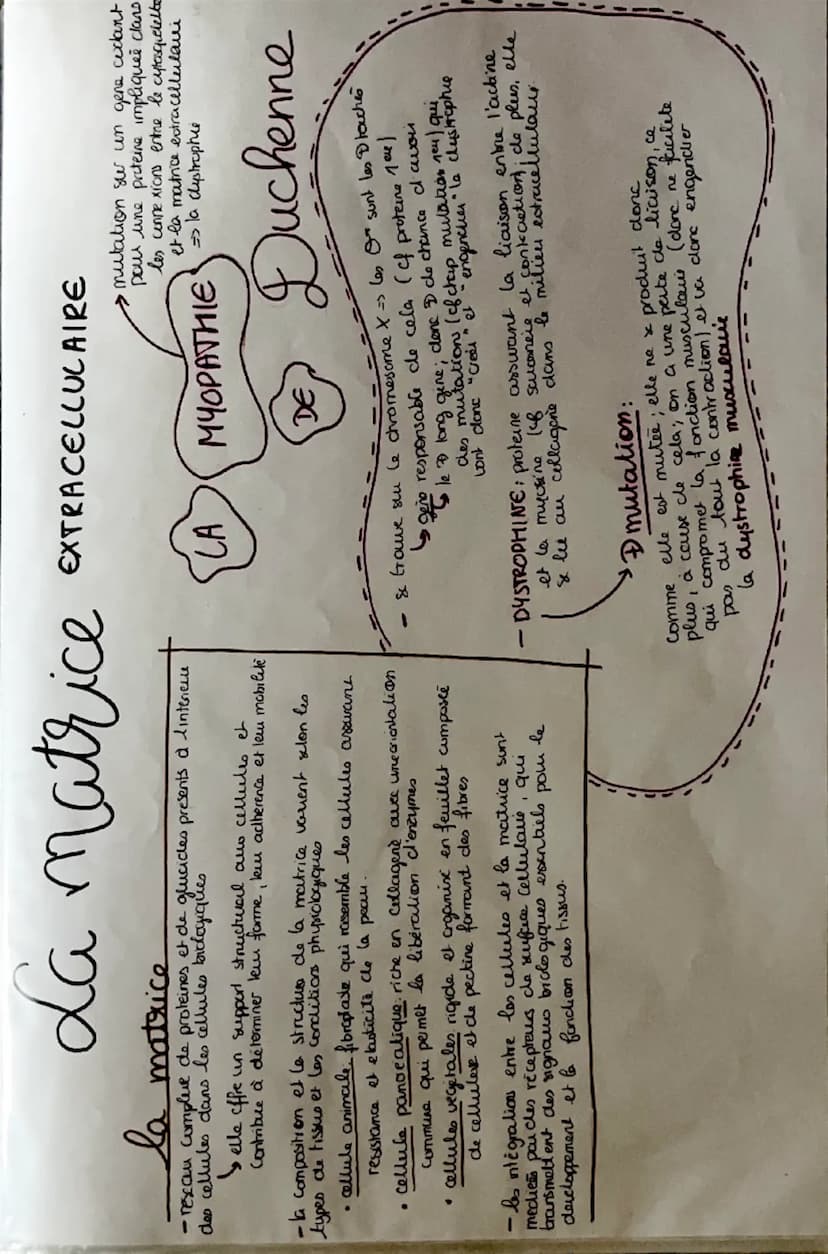 La Matrice EXTRACELLULAIRE
la matrice
- reseau complexe de protéines et de glucides présents à l'intérieur
des cellules dans les cellules biologiques
↳ elle offre un support structural aux cellules et
contribue à déterminer leur forme, leur adhérence et leur mobilité
- la composition et la structure de la matrice varient selon les
types de tissus et les conditions physiologiques
• cellule animale: fibroplaste qui rassemble les cellules assurant
resistance et elasticité de la peau.
• cellule pancréatique: riche en collagène avec une orientation
commune qui permet la libération d'enzymes
• cellules végétales rigide et organisé en feuillet composé
de cellulose et de pectine formant des fibres
- les intégrations entre les cellules et la matrice sont
mediées par des récepteurs de surface cellulaire, qui
transmettent des signaux biologiques essentiels pour le
developpement et la fonction des tissus.
LA MYOPATHIE
DE Duchenne
→ mutation sur un gène codant
pour une protéine impliquée dans
les connexions entre le cytosquelette
et la matrice extracellulaire
=> la dystrophie
- se trouve sur le chromosome X => les ♂ sont les + touchés
↳ gène responsable de cela (cf protéine 1er)
↳ le + long gène; donc + de chance d'avoir
des mutations (cf chap mutation 1er) qui
vont donc "créer" et "engendrer" la dystrophie
- DYSTROPHINE: protéine assurant la liaison entre l'actine
et la myosine (cf sarcomère et contraction); de plus, elle
se lie au collagène dans le milieu extracellulaire.
→ + mutation:
comme elle est mutée; elle ne se produit donc
plus, à cause de cela; on a une perte de liaison, ce
qui compromet la fonction musculaire (donc ne facilite
pas du tout la contraction) et va donc engendrer
la dystrophie musculaire